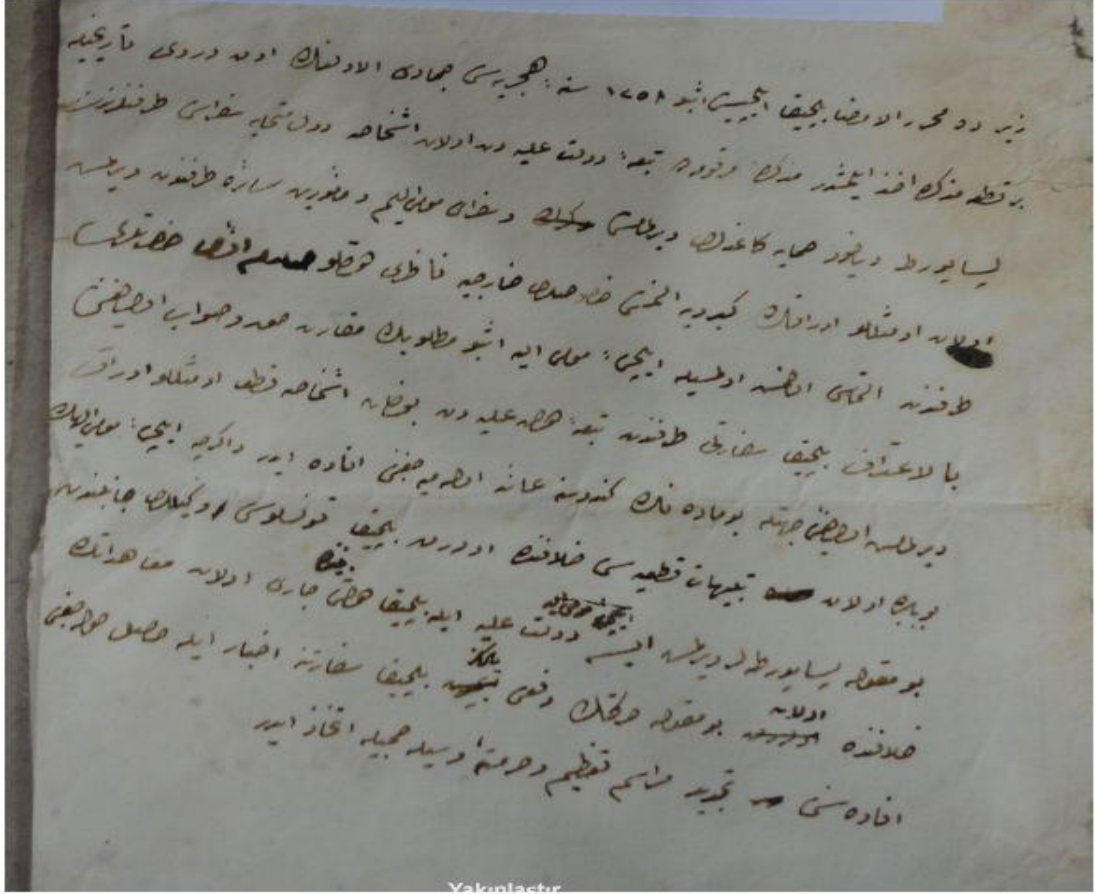 زیرده محرر الامضا بلجیقا ایلچیسی اشبو ١٢٥٨ سنهٔ هجریه سی جمادی الاولسنك اون دردی تاریخیله
بر قطعه مذكره اخذ ایلمشدر مذكرهٔ مرقومه تبعهٔ دولت علیه دن اولان اشخاصه دول متحابه سفراسی طرفلرندن
لیساپورط ویاخود حمایه كاغدلری ویرلمسی و سفرای مومی الیهم و مأمورین سائره طرفندن ویرلمش
اولان او مثللو اوراقك كیرویه النمسی خصوصلری خارجیه ناظری عطوفتلو صارم افندی حضرتلری
طرفندن التماس اولنمش اولمسیله ایلچیٔ مومی الیه اشبو مطلوبك مقارن حق وصواب اولدیغنی
بالاعتراف بلجیقا سفارتی طرفندن تبعهٔ دولت علیه دن بولنان اشخاصه قطعا او مثللو اوراق
ویرلمش اولمدیغی جهتله بو ماده نك كندوسنه عائد اوله میه جغنی افاده ایدر واكرچه ایلچیٔ مومی الیهك
بو بابده اولان تنبیهات قطعیه سی خلافنده اوله رق بلجیقا قونسلوسی و وكیللری جانبندن
بو مقوله لیساپورطه لر ویرلمش ایسه دولت علیه ایله بلجیقا بیننده جاری اولان معاهداتك
خلافنده اولان بو مقوله حركتك دفعی یالكز بلجیقا سفارتنه اخبار ایله حاصل اوله جغی
افاده سنی تجدید مراسم تعظیم و حرمته وسیلهٔ جمیله اتخاذ ایدر
Yakınlaştır